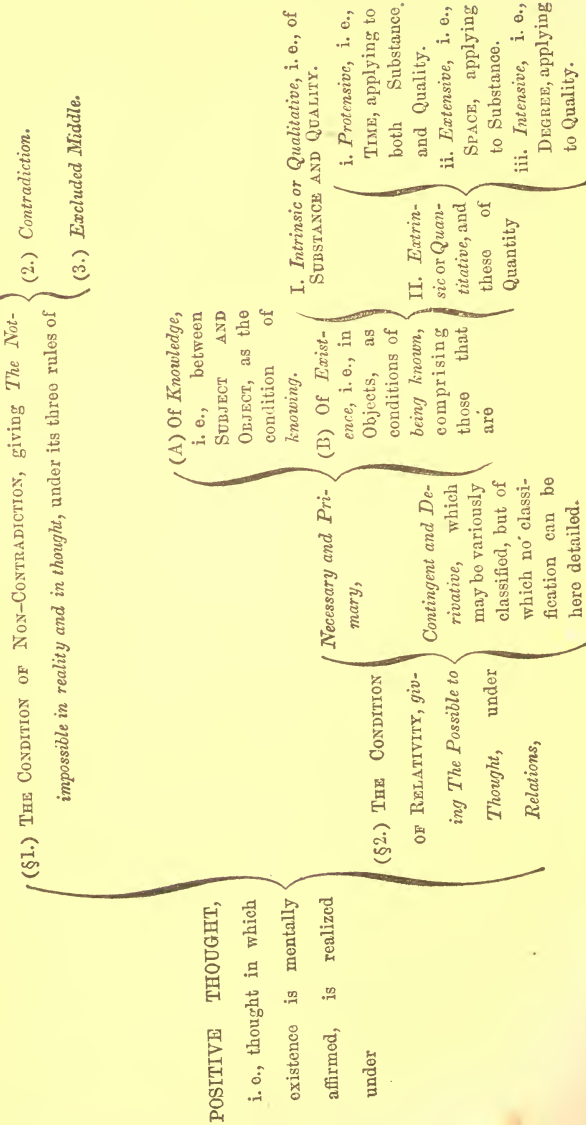 POSITIVE THOUGHT,
i. e., thought in which
existence is mentally
affirmed, is realized
under
(§1.) THE CONDITION OF NON-CONTRADICTION, giving The Not-
impossible in reality and in thought, under its three rules of
(2.) Contradiction.
(3.) Excluded Middle.
(§2.) THE CONDITION
OF RELATIVITY, giv-
ing The Possible to
Thought, under
Relations,
Necessary and Pri-
mary,
Contingent and De-
rivative, which
may be variously
classified, but of
which no classi-
fication can be
here detailed.
(A) Of Knowledge,
i. e., between
SUBJECT AND
OBJECT, as the
condition of
knowing.
(B) Of Exist-
ence, i. e., in
Objects, as
conditions of
being known,
comprising
those that
are
I. Intrinsic or Qualitative, i. e., of
SUBSTANCE AND QUALITY.
II. Extrin-
sic or Quan-
titative, and
these of
Quantity
i. Protensive, i. e.,
TIME, applying to
both Substance.
and Quality.
ii. Extensive, i. e.,
SPACE, applying
to Substance.
iii. Intensive, i. e.,
DEGREE, applying
to Quality.